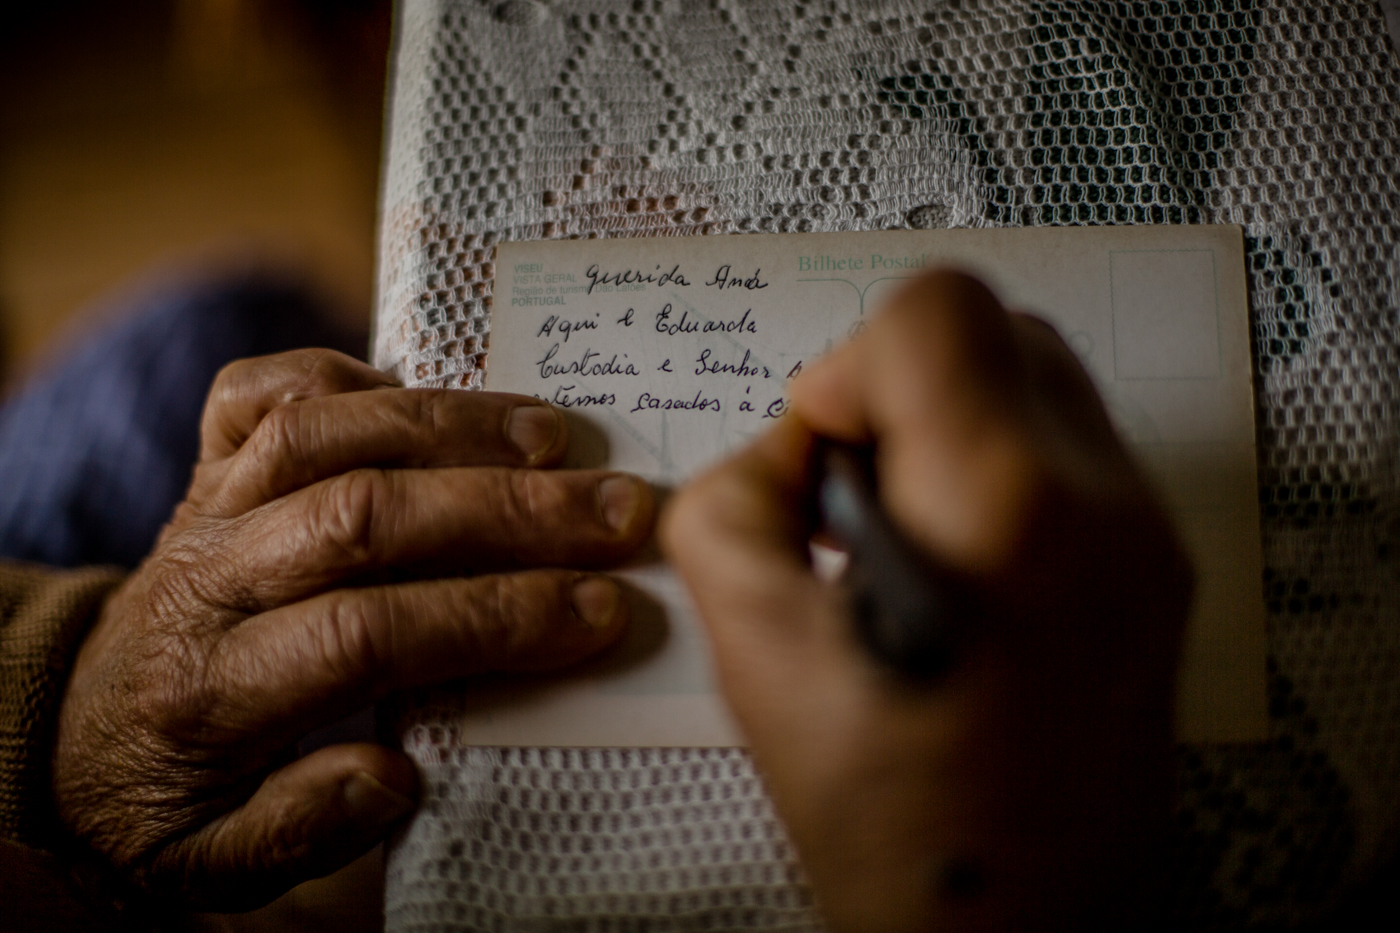 VISEU
VISTA GERAL
Região de turismo Dão Lafões
PORTUGAL
Bilhete Postal
Querida Aná
Aqui e Eduarda
Custodia e Senhor
casados á